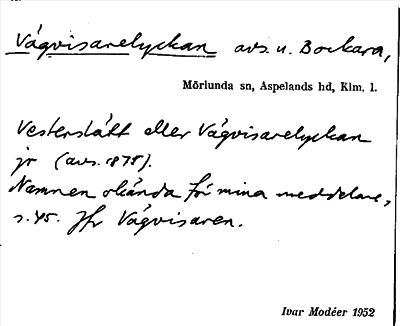 Vägvisarelyckan avs. u. Bockara,
Mörlunda sn, Aspelands hd, Klm. l.
Vesterslätt eller Vägvisarelyckan
jr (avs. 1878).
Namnen okända för mina meddelare,
s. 45. Jfr Vägvisaren.
Ivar Modéer 1952